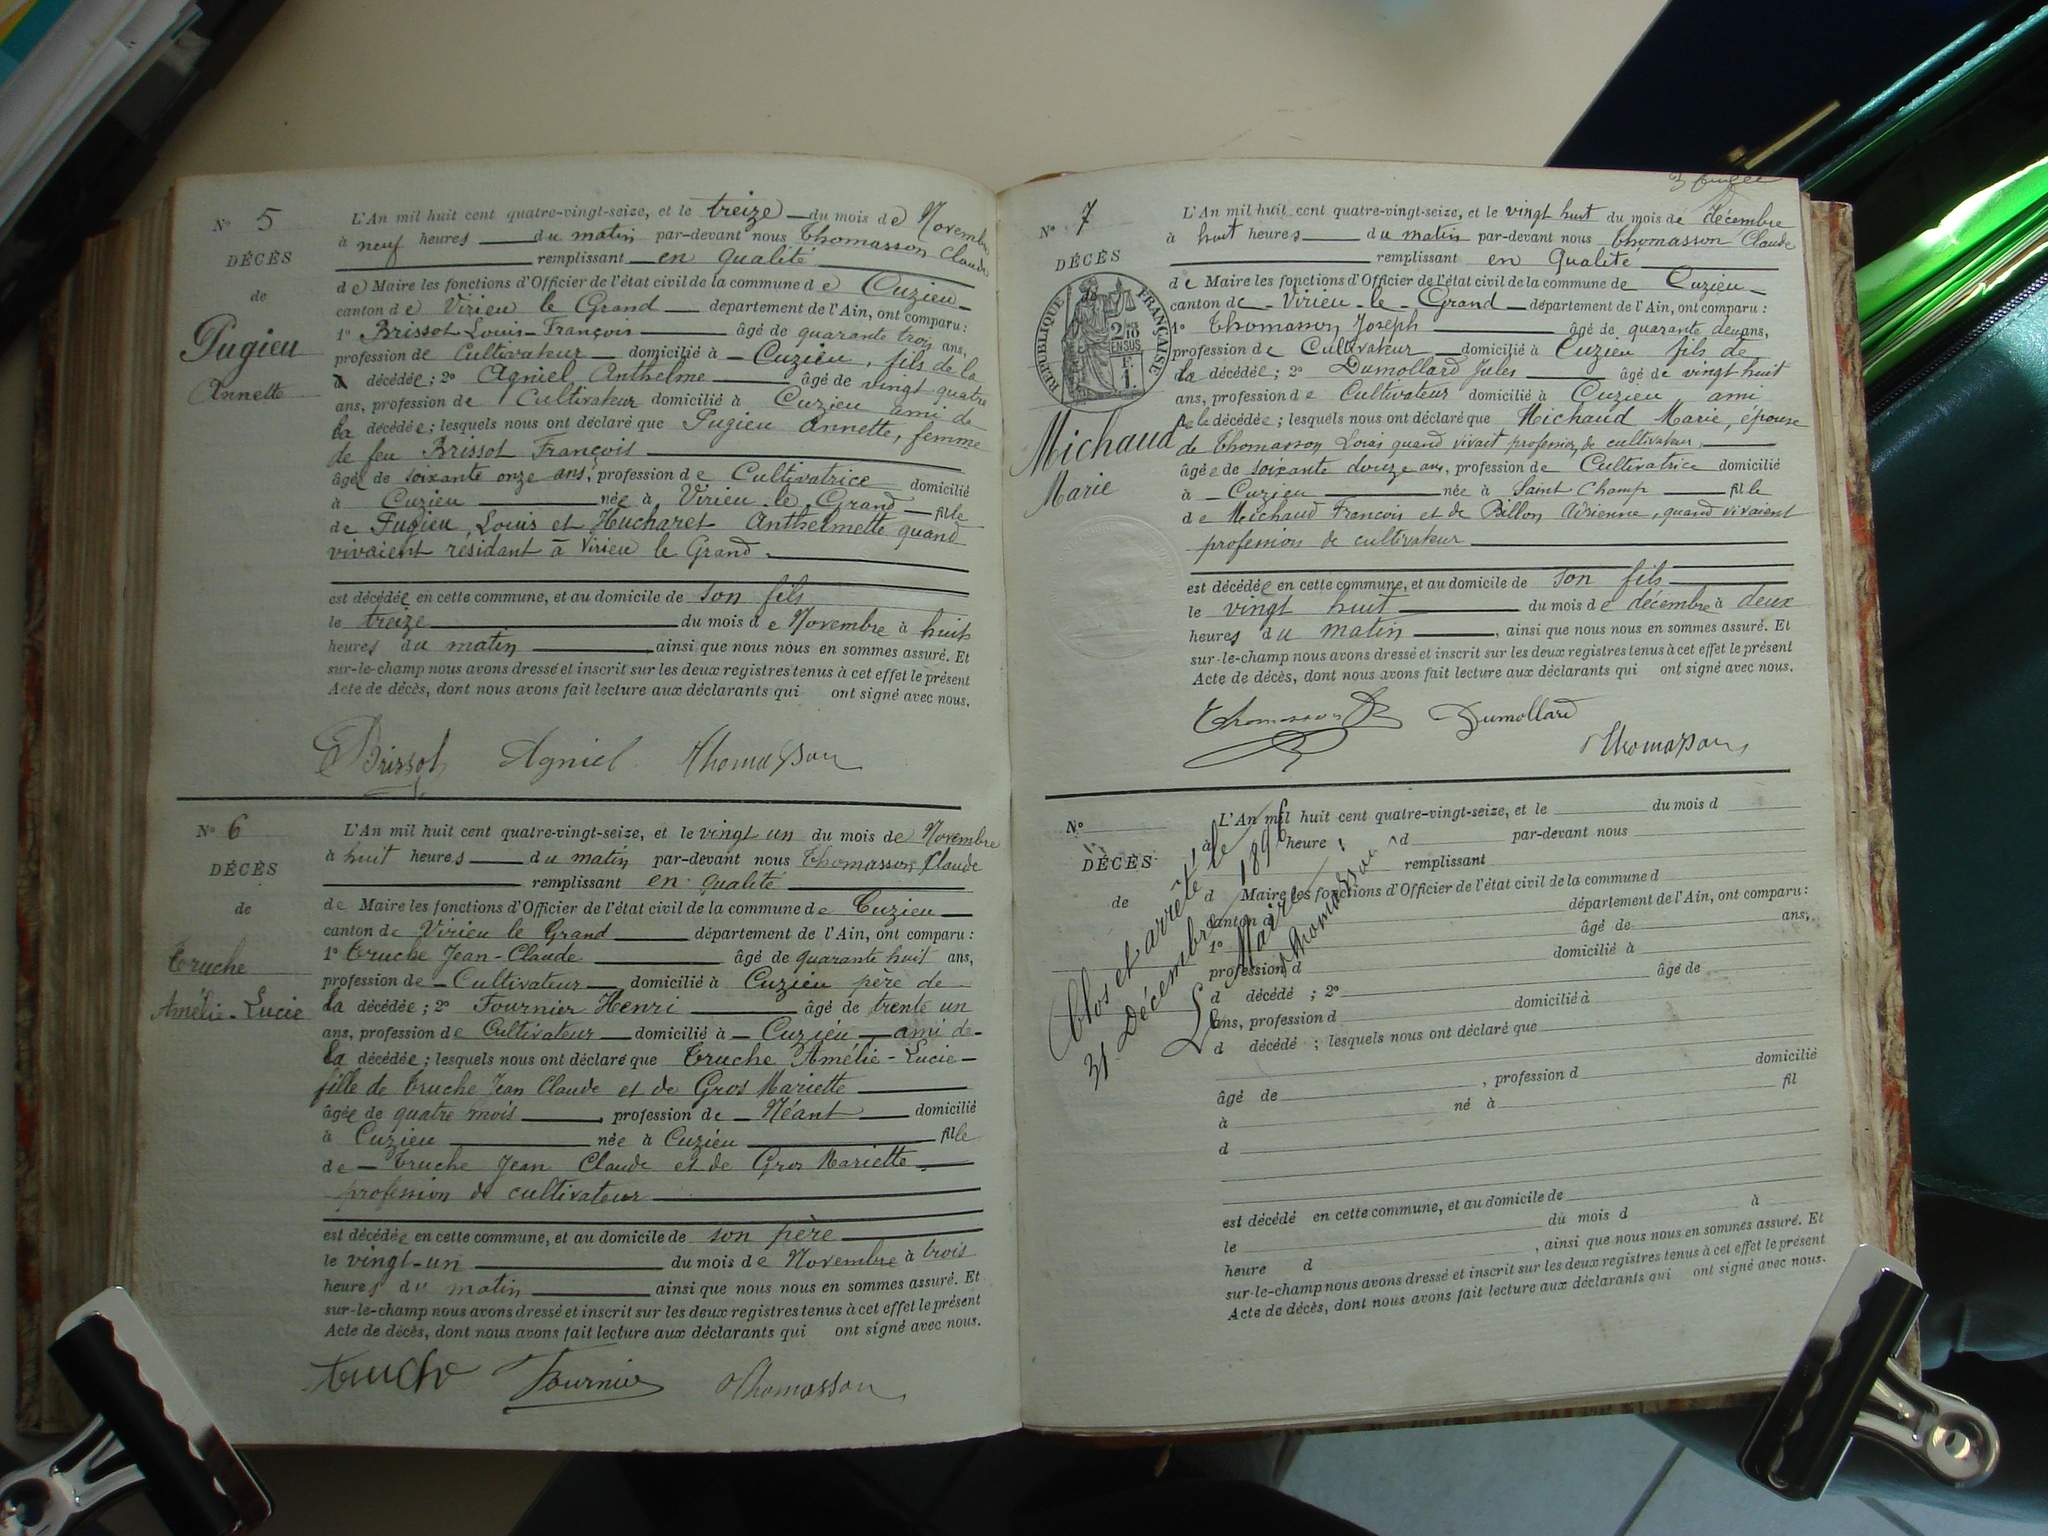 N° 5
DÉCÈS
de
Pugieu
Annette
L'An mil huit cent quatre-vingt-seize, et le treize du mois de Novembre
à neuf heures du matin par-devant nous Thomasson Claude
remplissant en qualité
de Maire les fonctions d'Officier de l'état civil de la commune de Cuzieu
canton de Virieu le Grand département de l'Ain, ont comparu :
1° Brissot Louis-François âgé de quarante trois ans,
profession de Cultivateur domicilié à Cuzieu, fils de la
décédée ; 2° Agniel Anthelme âgé de vingt quatre
ans, profession de Cultivateur domicilié à Cuzieu ami de
la décédée ; lesquels nous ont déclaré que Pugieu Annette, femme
de feu Brissot François
âgée de soixante onze ans, profession de Cultivatrice domicilié
à Cuzieu née à Virieu le Grand fille
de Pugieu Louis et Hucharet Anthelmette quand
vivaient résidant à Virieu le Grand.
est décédée en cette commune, et au domicile de son fils
le treize du mois de Novembre à huit
heures du matin ainsi que nous nous en sommes assuré. Et
sur-le-champ nous avons dressé et inscrit sur les deux registres tenus à cet effet le présent
Acte de décès, dont nous avons fait lecture aux déclarants qui ont signé avec nous.
Brissot Agniel Thomasson
N° 6
DÉCÈS
de
Truche
Amélie-Lucie
L'An mil huit cent quatre-vingt-seize, et le vingt un du mois de Novembre
à huit heures du matin par-devant nous Thomasson Claude
remplissant en qualité
de Maire les fonctions d'Officier de l'état civil de la commune de Cuzieu
canton de Virieu le Grand département de l'Ain, ont comparu :
1° Truche Jean-Claude âgé de quarante huit ans,
profession de Cultivateur domicilié à Cuzieu père de
la décédée ; 2° Fournier Henri âgé de trente un
ans, profession de Cultivateur domicilié à Cuzieu ami de
la décédée ; lesquels nous ont déclaré que Truche Amélie-Lucie
fille de Truche Jean Claude et de Gros Mariette
âgée de quatre mois, profession de Néant domicilié
à Cuzieu née à Cuzieu fille
de Truche Jean Claude et de Gros Mariette
profession de cultivateur
est décédée en cette commune, et au domicile de son père
le vingt-un du mois de Novembre à trois
heures du matin ainsi que nous nous en sommes assuré. Et
sur-le-champ nous avons dressé et inscrit sur les deux registres tenus à cet effet le présent
Acte de décès, dont nous avons fait lecture aux déclarants qui ont signé avec nous.
Truche Fournier Thomasson
N° 7
DÉCÈS
RÉPUBLIQUE FRANÇAISE
2/10 EN SUS
F. 1.
Michaud
Marie
L'An mil huit cent quatre-vingt-seize, et le vingt huit du mois de décembre
à huit heures du matin par-devant nous Thomasson Claude
remplissant en Qualité
de Maire les fonctions d'Officier de l'état civil de la commune de Cuzieu
canton de Virieu-le-Grand département de l'Ain, ont comparu :
1° Thomasson Joseph âgé de quarante deux ans,
profession de Cultivateur domicilié à Cuzieu fils de
la décédée ; 2° Dumollard Jules âgé de vingt huit
ans, profession de Cultivateur domicilié à Cuzieu ami
de la décédée ; lesquels nous ont déclaré que Michaud Marie, épouse
de Thomasson Louis quand vivait profession de cultivateur,
âgée de soixante douze ans, profession de Cultivatrice domicilié
à Cuzieu née à Saint Champ fille
de Michaud François et de Billon Adrienne, quand vivaient
profession de cultivateur
est décédée en cette commune, et au domicile de son fils
le vingt huit du mois de décembre à deux
heures du matin, ainsi que nous nous en sommes assuré. Et
sur-le-champ nous avons dressé et inscrit sur les deux registres tenus à cet effet le présent
Acte de décès, dont nous avons fait lecture aux déclarants qui ont signé avec nous.
Thomasson Dumollard
Thomasson
N°
DÉCÈS
de
L'An mil huit cent quatre-vingt-seize, et le du mois d
à heure d par-devant nous
remplissant
d Maire les fonctions d'Officier de l'état civil de la commune d
canton d département de l'Ain, ont comparu :
1° âgé de ans,
profession d domicilié à
d décédé ; 2° âgé de
ans, profession d domicilié à
d décédé ; lesquels nous ont déclaré que
âgé de , profession d domicilié
à né à fil
d
est décédé en cette commune, et au domicile de
le du mois d à
heure d , ainsi que nous nous en sommes assuré. Et
sur-le-champ nous avons dressé et inscrit sur les deux registres tenus à cet effet le présent
Acte de décès, dont nous avons fait lecture aux déclarants qui ont signé avec nous.
Clos et arrêté le
31 Décembre 1896
Le Maire
Thomasson